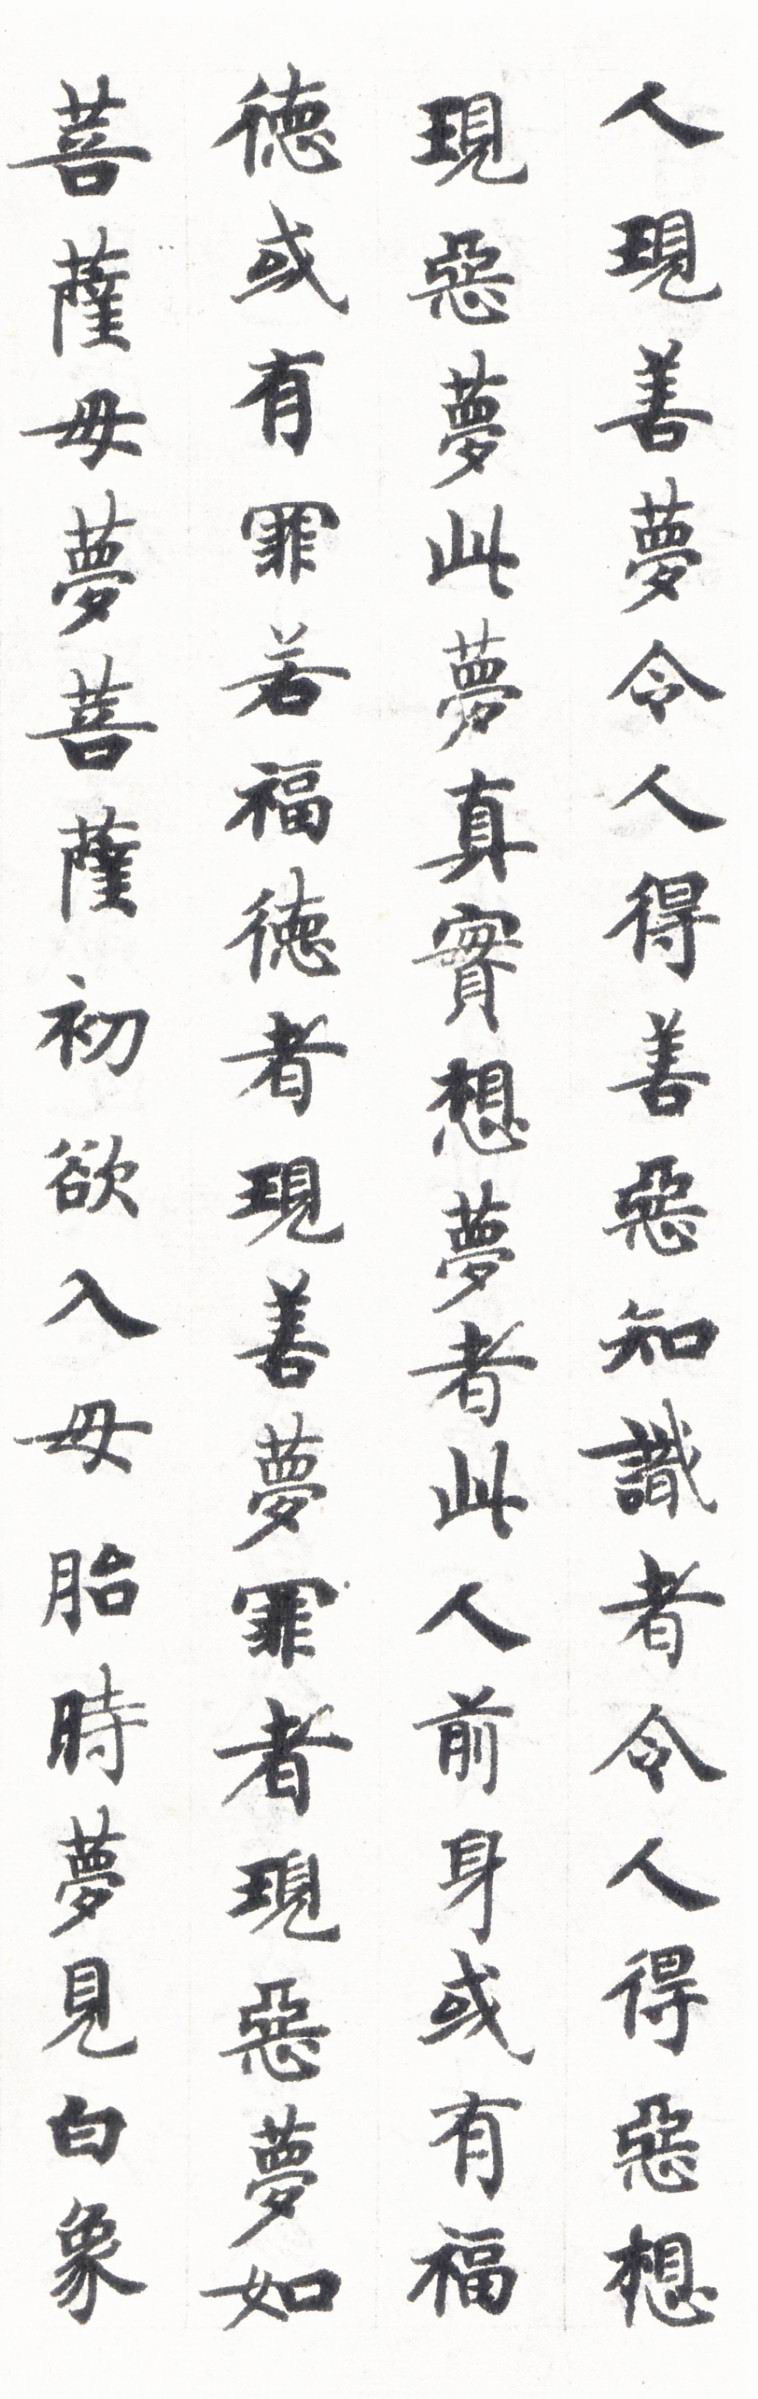 人現善夢令人得善惡知識者令人得惡想
現惡夢此夢真實想夢者此人前身或有福
徳或有罪若福徳者現善夢罪者現惡夢如
菩薩母夢菩薩初欲入母胎時夢見白象